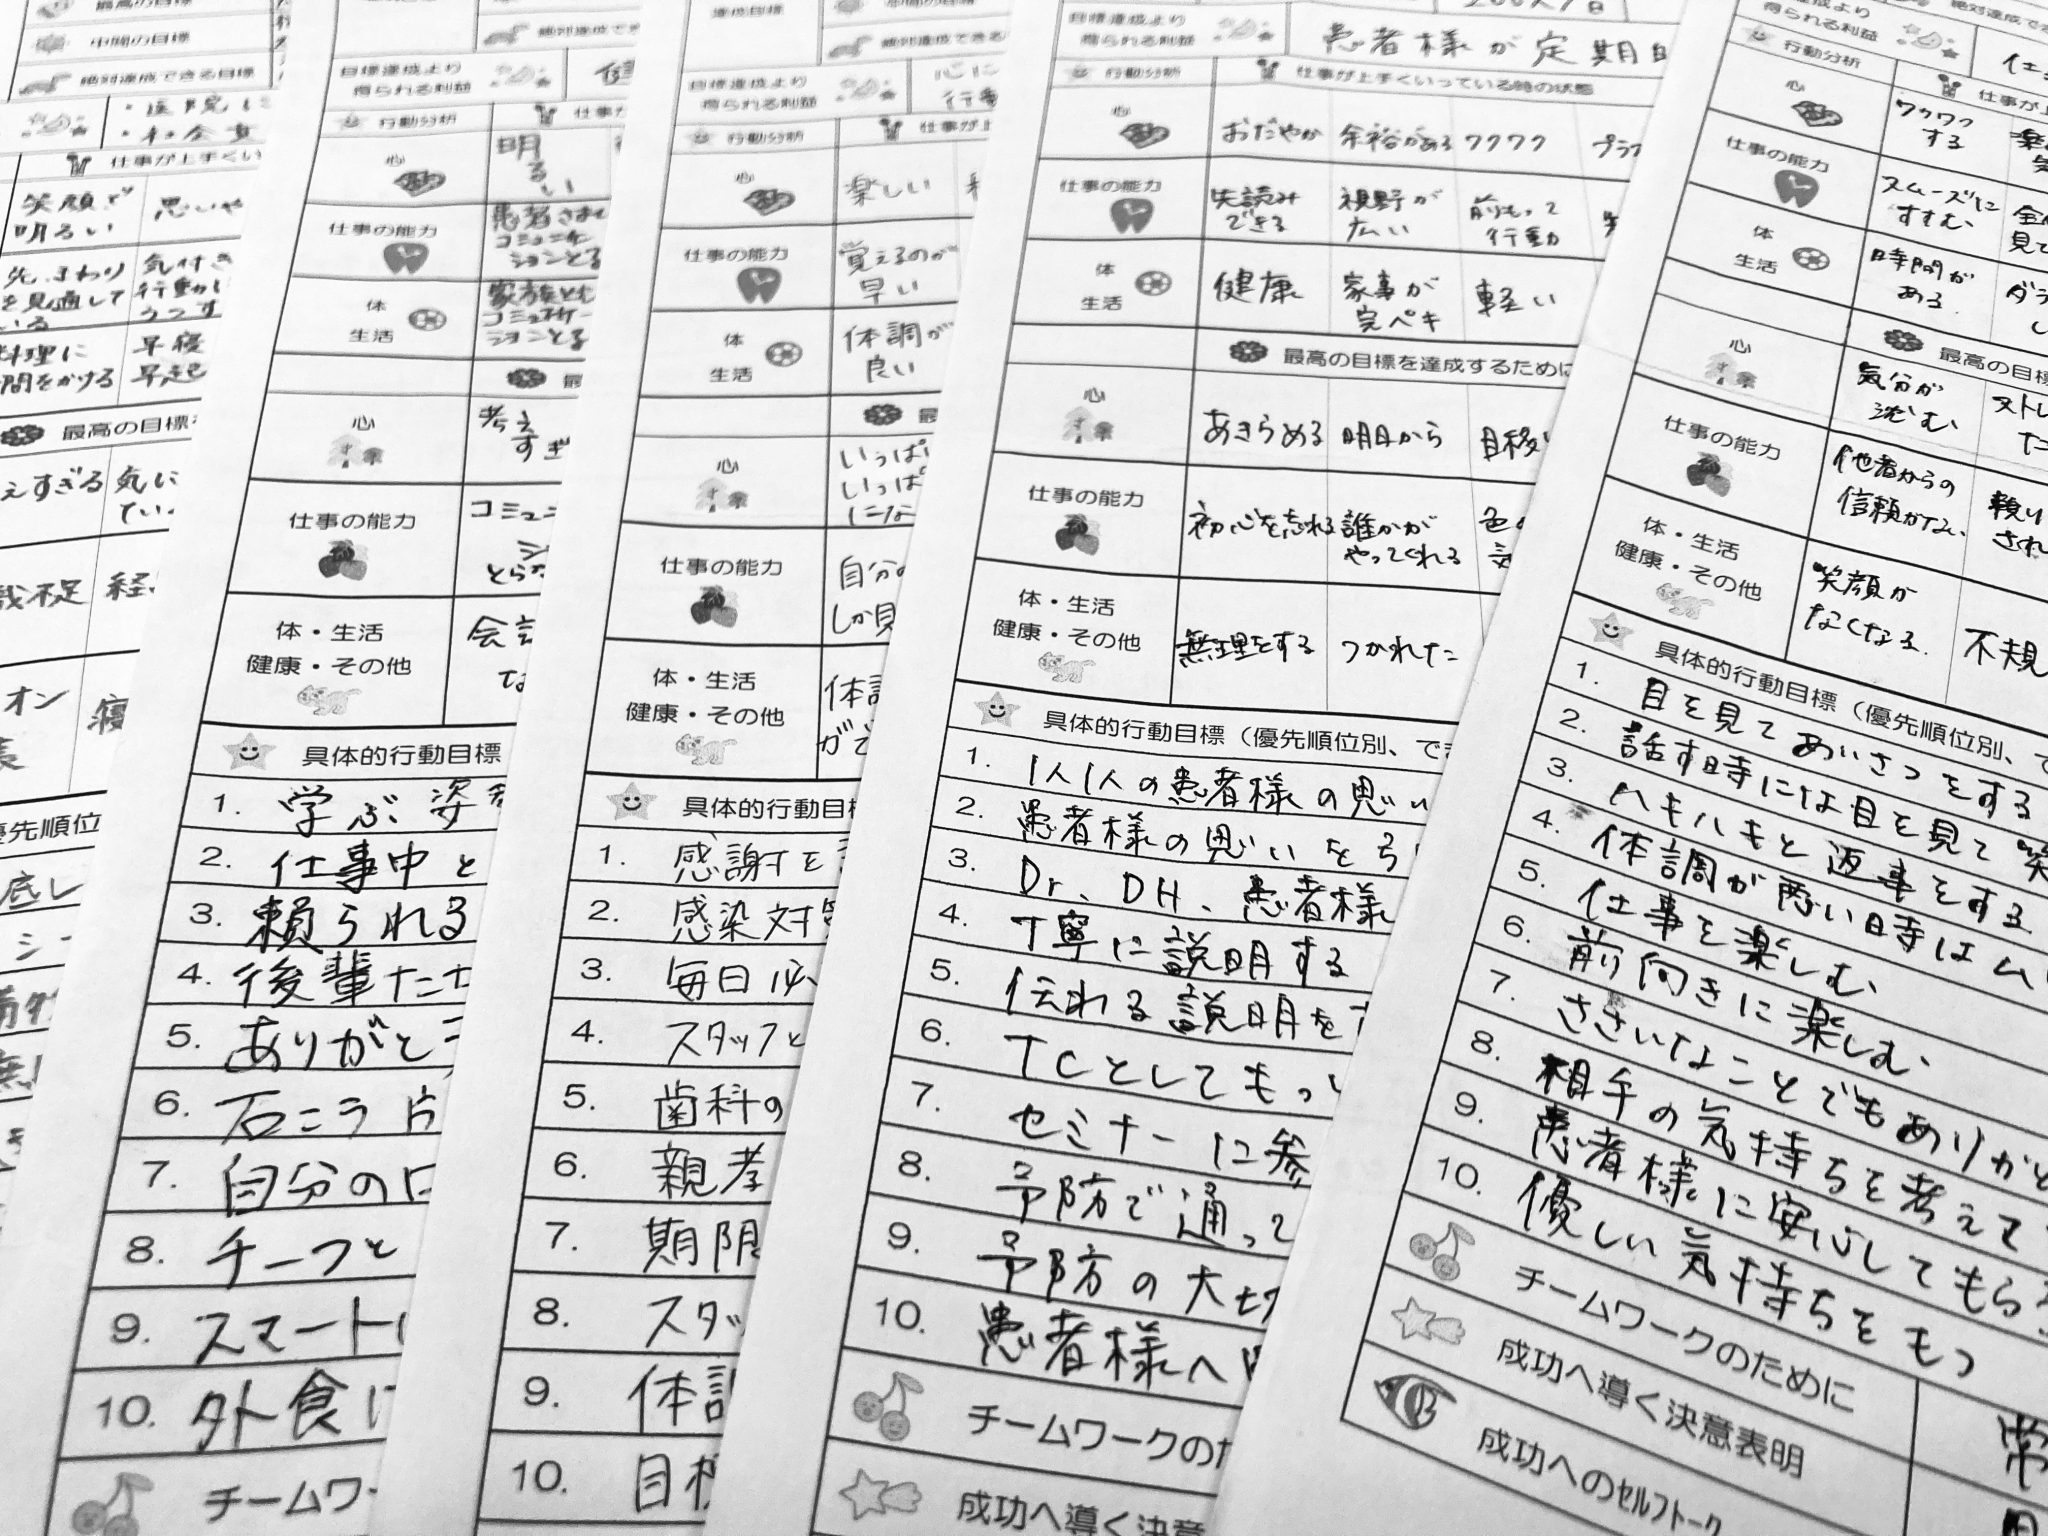 最高の目標
中間の目標
絶対達成できる目標
・医院に
仕事が上手くい
笑顔で
明るい
思いや
先まわり
を見通して
いる
気付き
行動に
うつす
料理に
間をかける
早寝
早起
最高の目標
えすぎる
気に
識不足
経
オン
優先順位
底し
目標達成より
得られる利益
行動分析
仕事が
心
明
る
い
仕事の能力
患者さまと
コミュニケー
ションとる
体
生活
家族とも
コミュニケー
ションとる
最
心
考え
すぎ
仕事の能力
コミュニ
とらな
体・生活
健康・その他
会話
な
具体的行動目標
1. 学ぶ姿
2. 仕事中と
3. 頼られる
4. 後輩たち
5. ありがとう
6. 石こう片
7. 自分の
8. チーフと
9. スマート
10. 外食
チームワー
達成目標
中間の目標
絶対達成でき
目標達成より
得られる利益
心に
行動
行動分析
仕事が上
心
楽しい
仕事の能力
覚えるのが
早い
体
生活
体調が
良い
最
心
いっぱい
いっぱ
にな
仕事の能力
自分の
しか見
体・生活
健康・その他
体調
がで
具体的行動目標
1. 感謝を
2. 感染対策
3. 毎日必
4. スタッフと
5. 歯科の
6. 親孝
7. 期限
8. スタッ
9. 体調
10. 目標
目標達成より
得られる利益
患者様が定期
行動分析
仕事が上手くいっている時の状態
心
おだやか
余裕がある
ワクワク
プラ
仕事の能力
先読み
できる
視野が
広い
前もって
行動
体
生活
健康
家事が
完ペキ
軽い
最高の目標を達成するために
心
あきらめる
明日から
目移
仕事の能力
初心を忘れる
誰かが
やってくれる
体・生活
健康・その他
無理をする
つかれた
具体的行動目標（優先順位別、でき
1. 1人1人の患者様の思い
2. 患者様の思いを引
3. Dr、DH、患者様
4. 丁寧に説明する
5. 伝わる説明を
6. TCとしてもっ
7. セミナーに参
8. 予防で通って
9. 予防の大切
10. 患者様へ
チームワークのた
成功へ導く決意
達成より
得られる利益
仕
行動分析
仕事が上
心
ワクワク
する
仕事の能力
スムーズに
すすむ
体
生活
時間が
ある
最高の目標
心
気分が
沈む
ストレ
仕事の能力
他者からの
信頼がない
頼り
され
体・生活
健康・その他
笑顔が
なくなる
不規
具体的行動目標（優先順位別、で
1. 目を見てあいさつをする
2. 話す時には目を見て笑
3. ハキハキと返事をする
4. 体調が悪い時はム
5. 仕事を楽しむ
6. 前向きに楽しむ
7. ささいなことでもありがと
8. 相手の気持ちを考えて
9. 患者様に安心してもらう
10. 優しい気持ちをもつ
チームワークのために
成功へ導く決意表明
常
成功へのｾﾙﾌﾄｰｸ